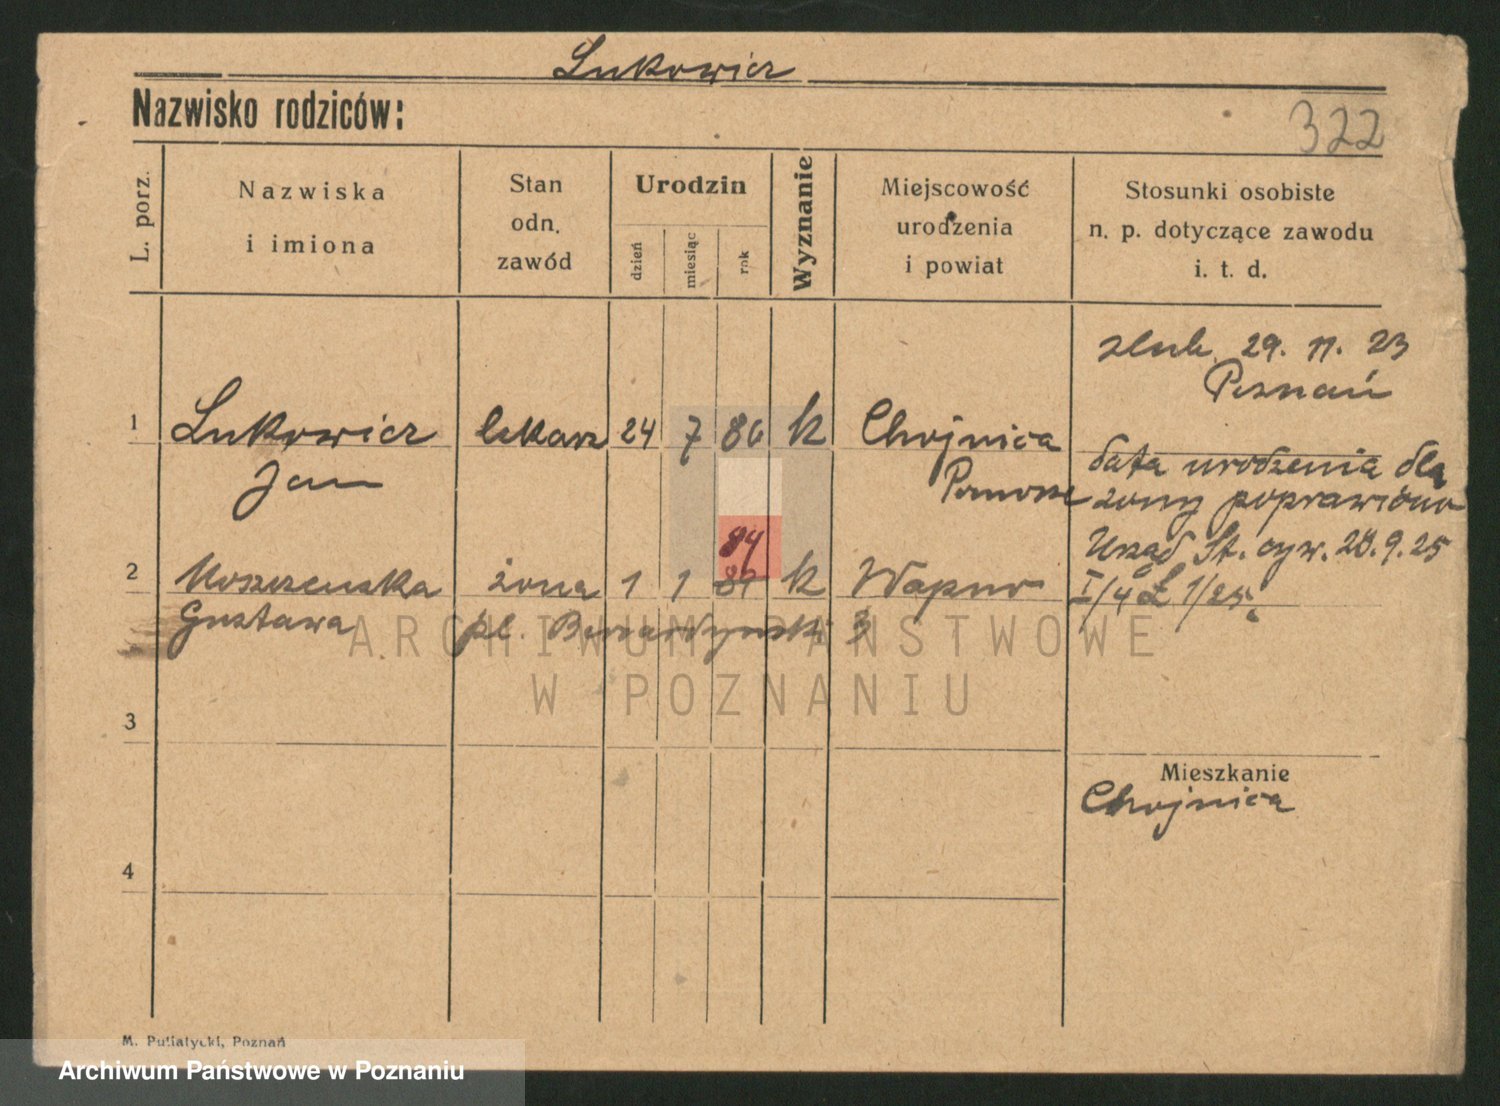 Lukowicz
Nazwisko rodziców:
322
L. porz.
Nazwiska
i imiona
Stan
odn.
zawód
Urodzin
dzień
miesiąc
rok
Wyznanie
Miejscowość
urodzenia
i powiat
Stosunki osobiste
n. p. dotyczące zawodu
i. t. d.
ślub 29. 11. 23
Poznań
1 Lukowicz lekarz 24 7 86 k Chojnica
Jan Pomorze
data urodzenia dla
żony poprawiono
Urząd St. cyw. 28.9.25
I/4 Ł 1/25.
84
2 Koszczenska żona 1 1 87 k Wapno
Gustawa pl. Bernardynski 3
3
Mieszkanie
Chojnica
4
M. Putiatycki, Poznań
ARCHIWUM PAŃSTWOWE
W POZNANIU
Archiwum Państwowe w Poznaniu